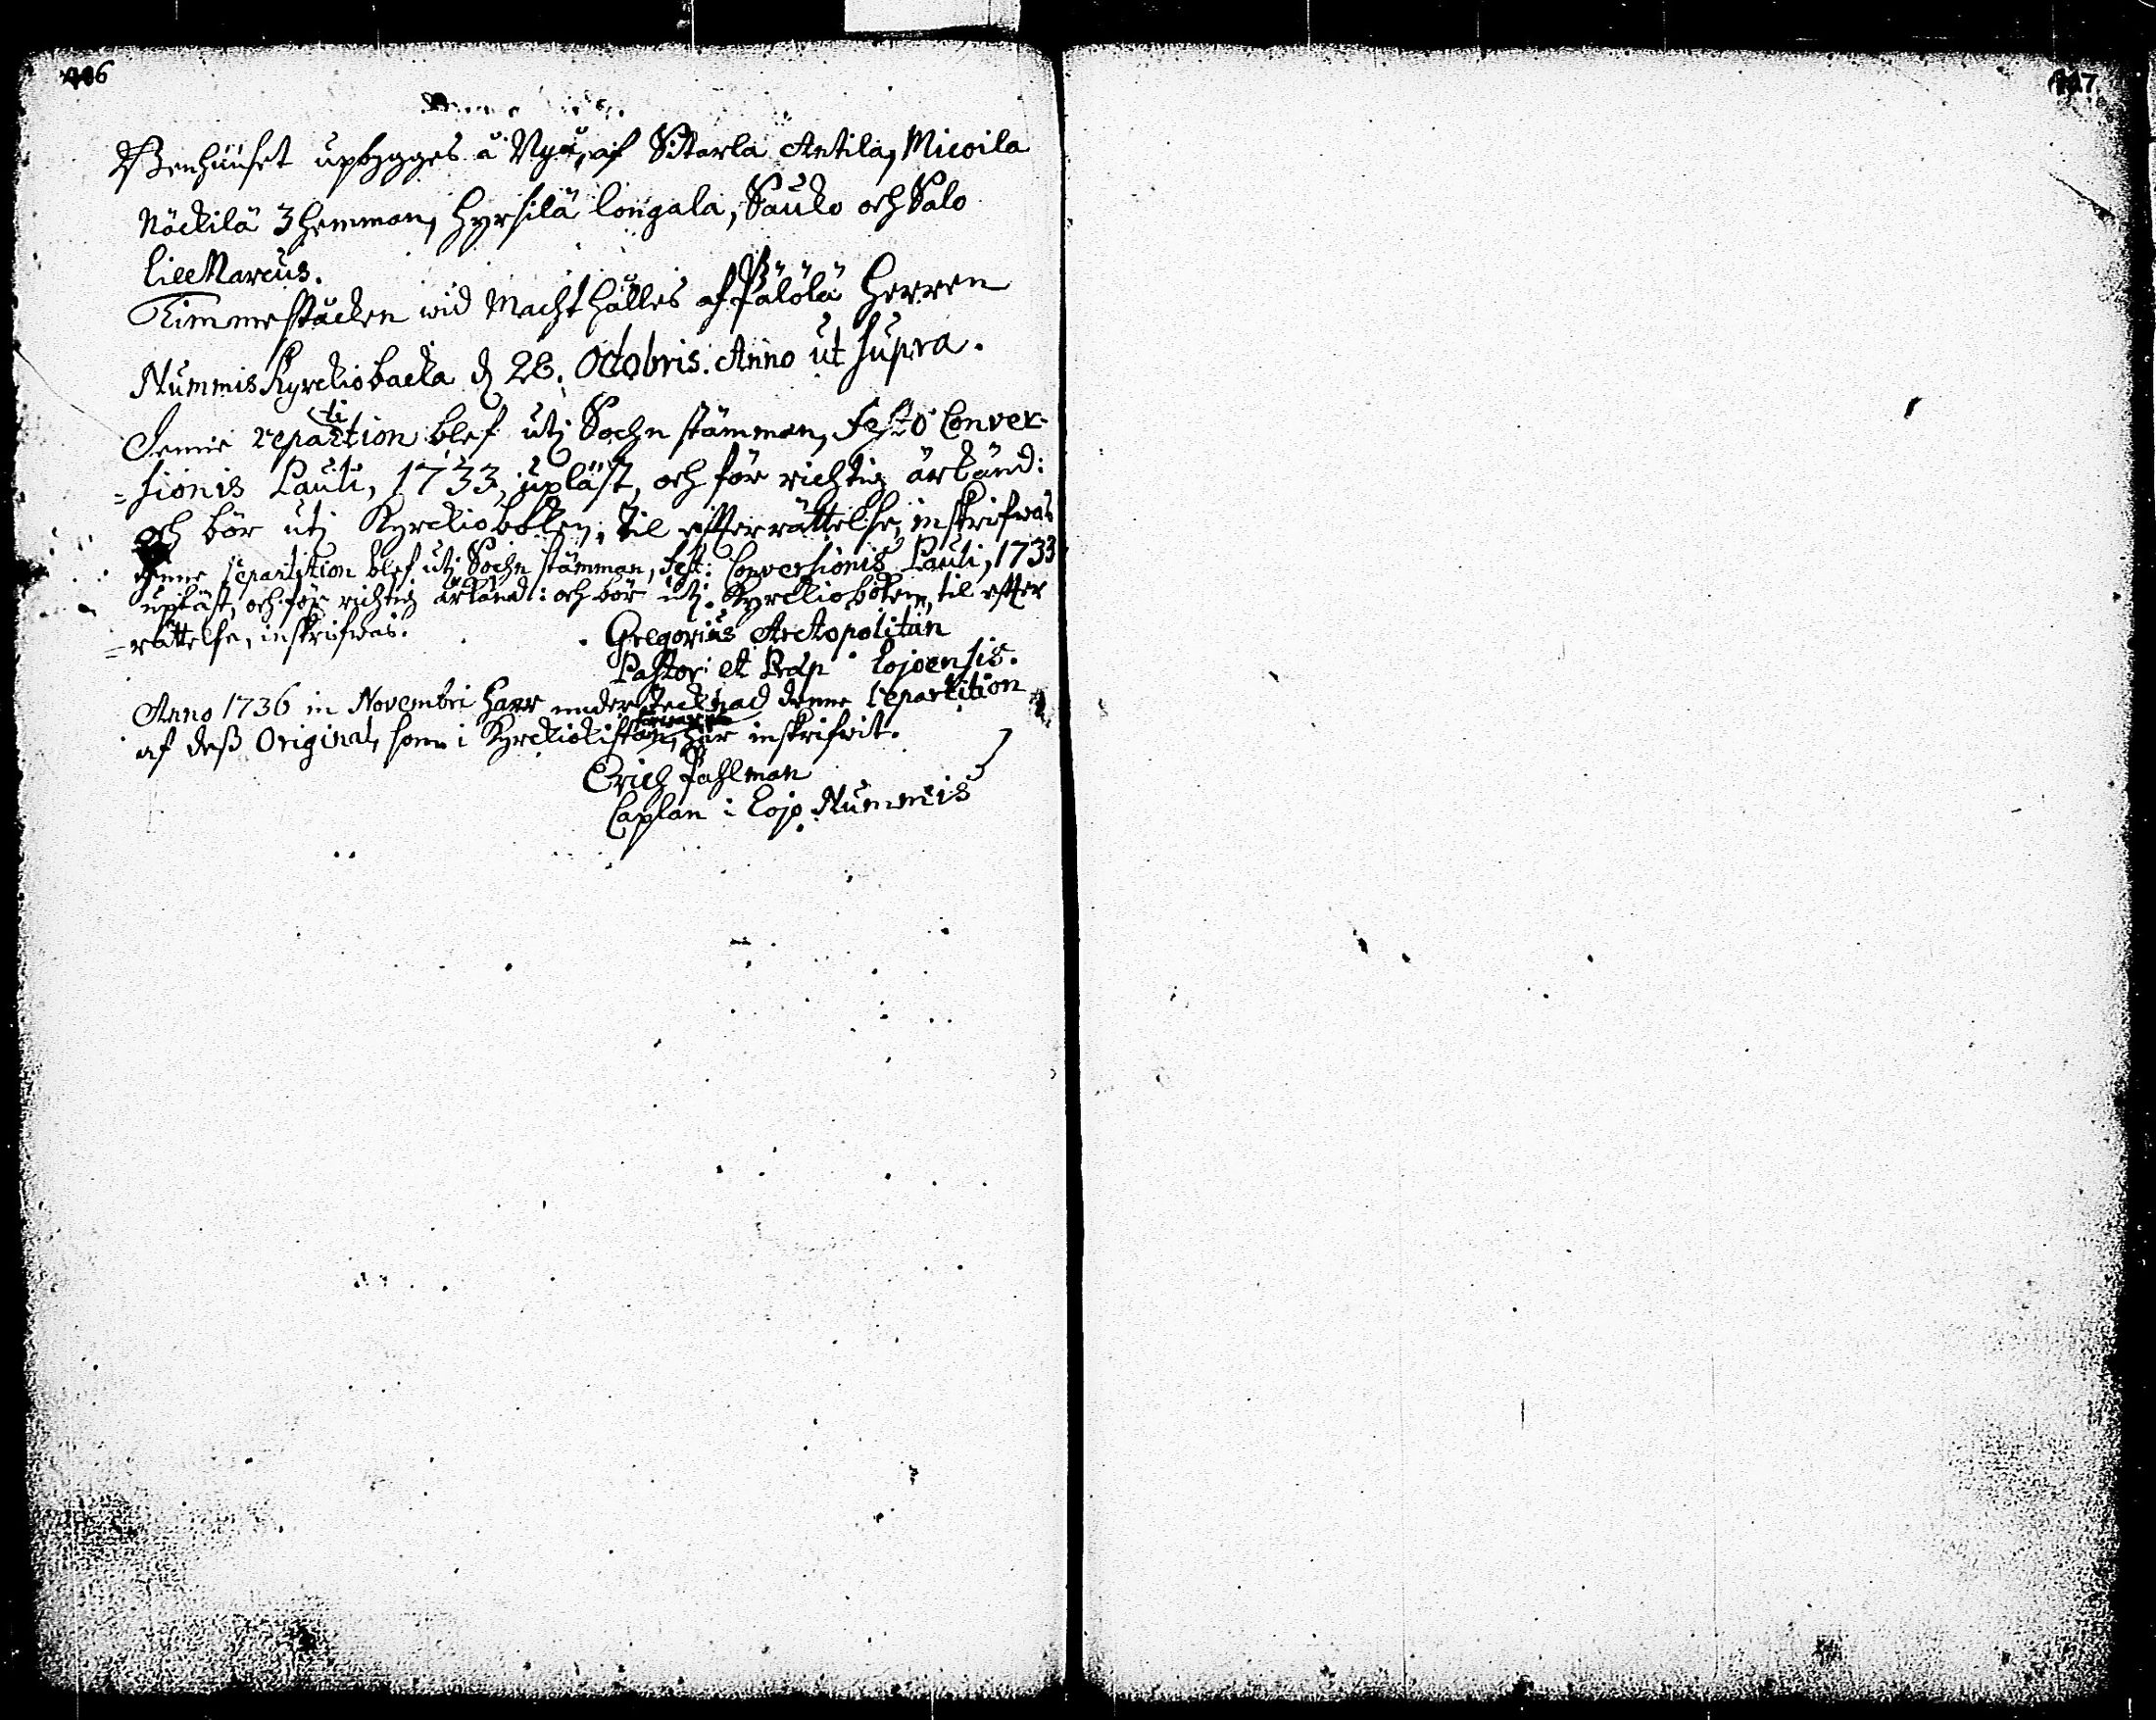 Benhuuset upbygges å Nyå, af Sitarla Antila, Micoila
Näckilä 3 hemman, Hyrsilä Longala, Sauko och Salo
Lill Marcus.
Timmerstäcken wid Macht hålles af Pälölä Herren
Nummis Kyrckiobacka d 28. Octobris. Anno ut supra.
Denne repartition blef utj Sochnstämman, Festo Conver-
=sionis Pauli, 1733, upläst, och för richtig ärkänd:
och bör utj Kyrckioboken, til effterrättelse, inskrifwas
denne repartition blef utj Sochnstämman, Fest: Conversionis Pauli, 1733
upläst, och för richtig ärkänd: och bör utj Kyrckioboken, til effter
=rättelse, inskrifwas.
Gregorius Arctopolitan
Pastor et Præp Lojoensis.
Anno 1736 in Novembri harr undertecknad denne repartition
af dess Original, som i Kyrckiokistan, här inskrifwit.
Erich Pahlman
Caplan i Lojo Nummis